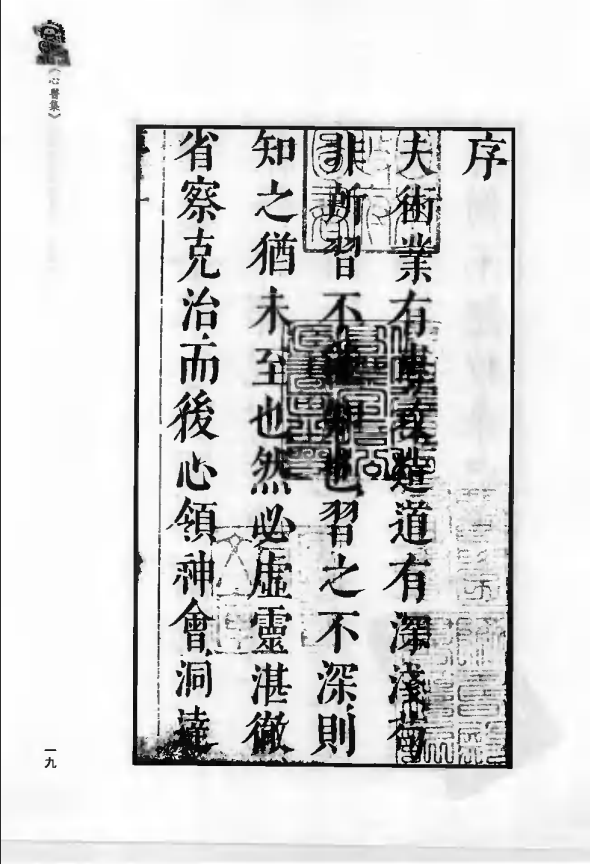 《心醫集》
序
夫術業有造道有深淺苟
非所習不也習之不深則
知之猶未至也然必虛靈湛徹
省察克治而後心領神會洞達
一九